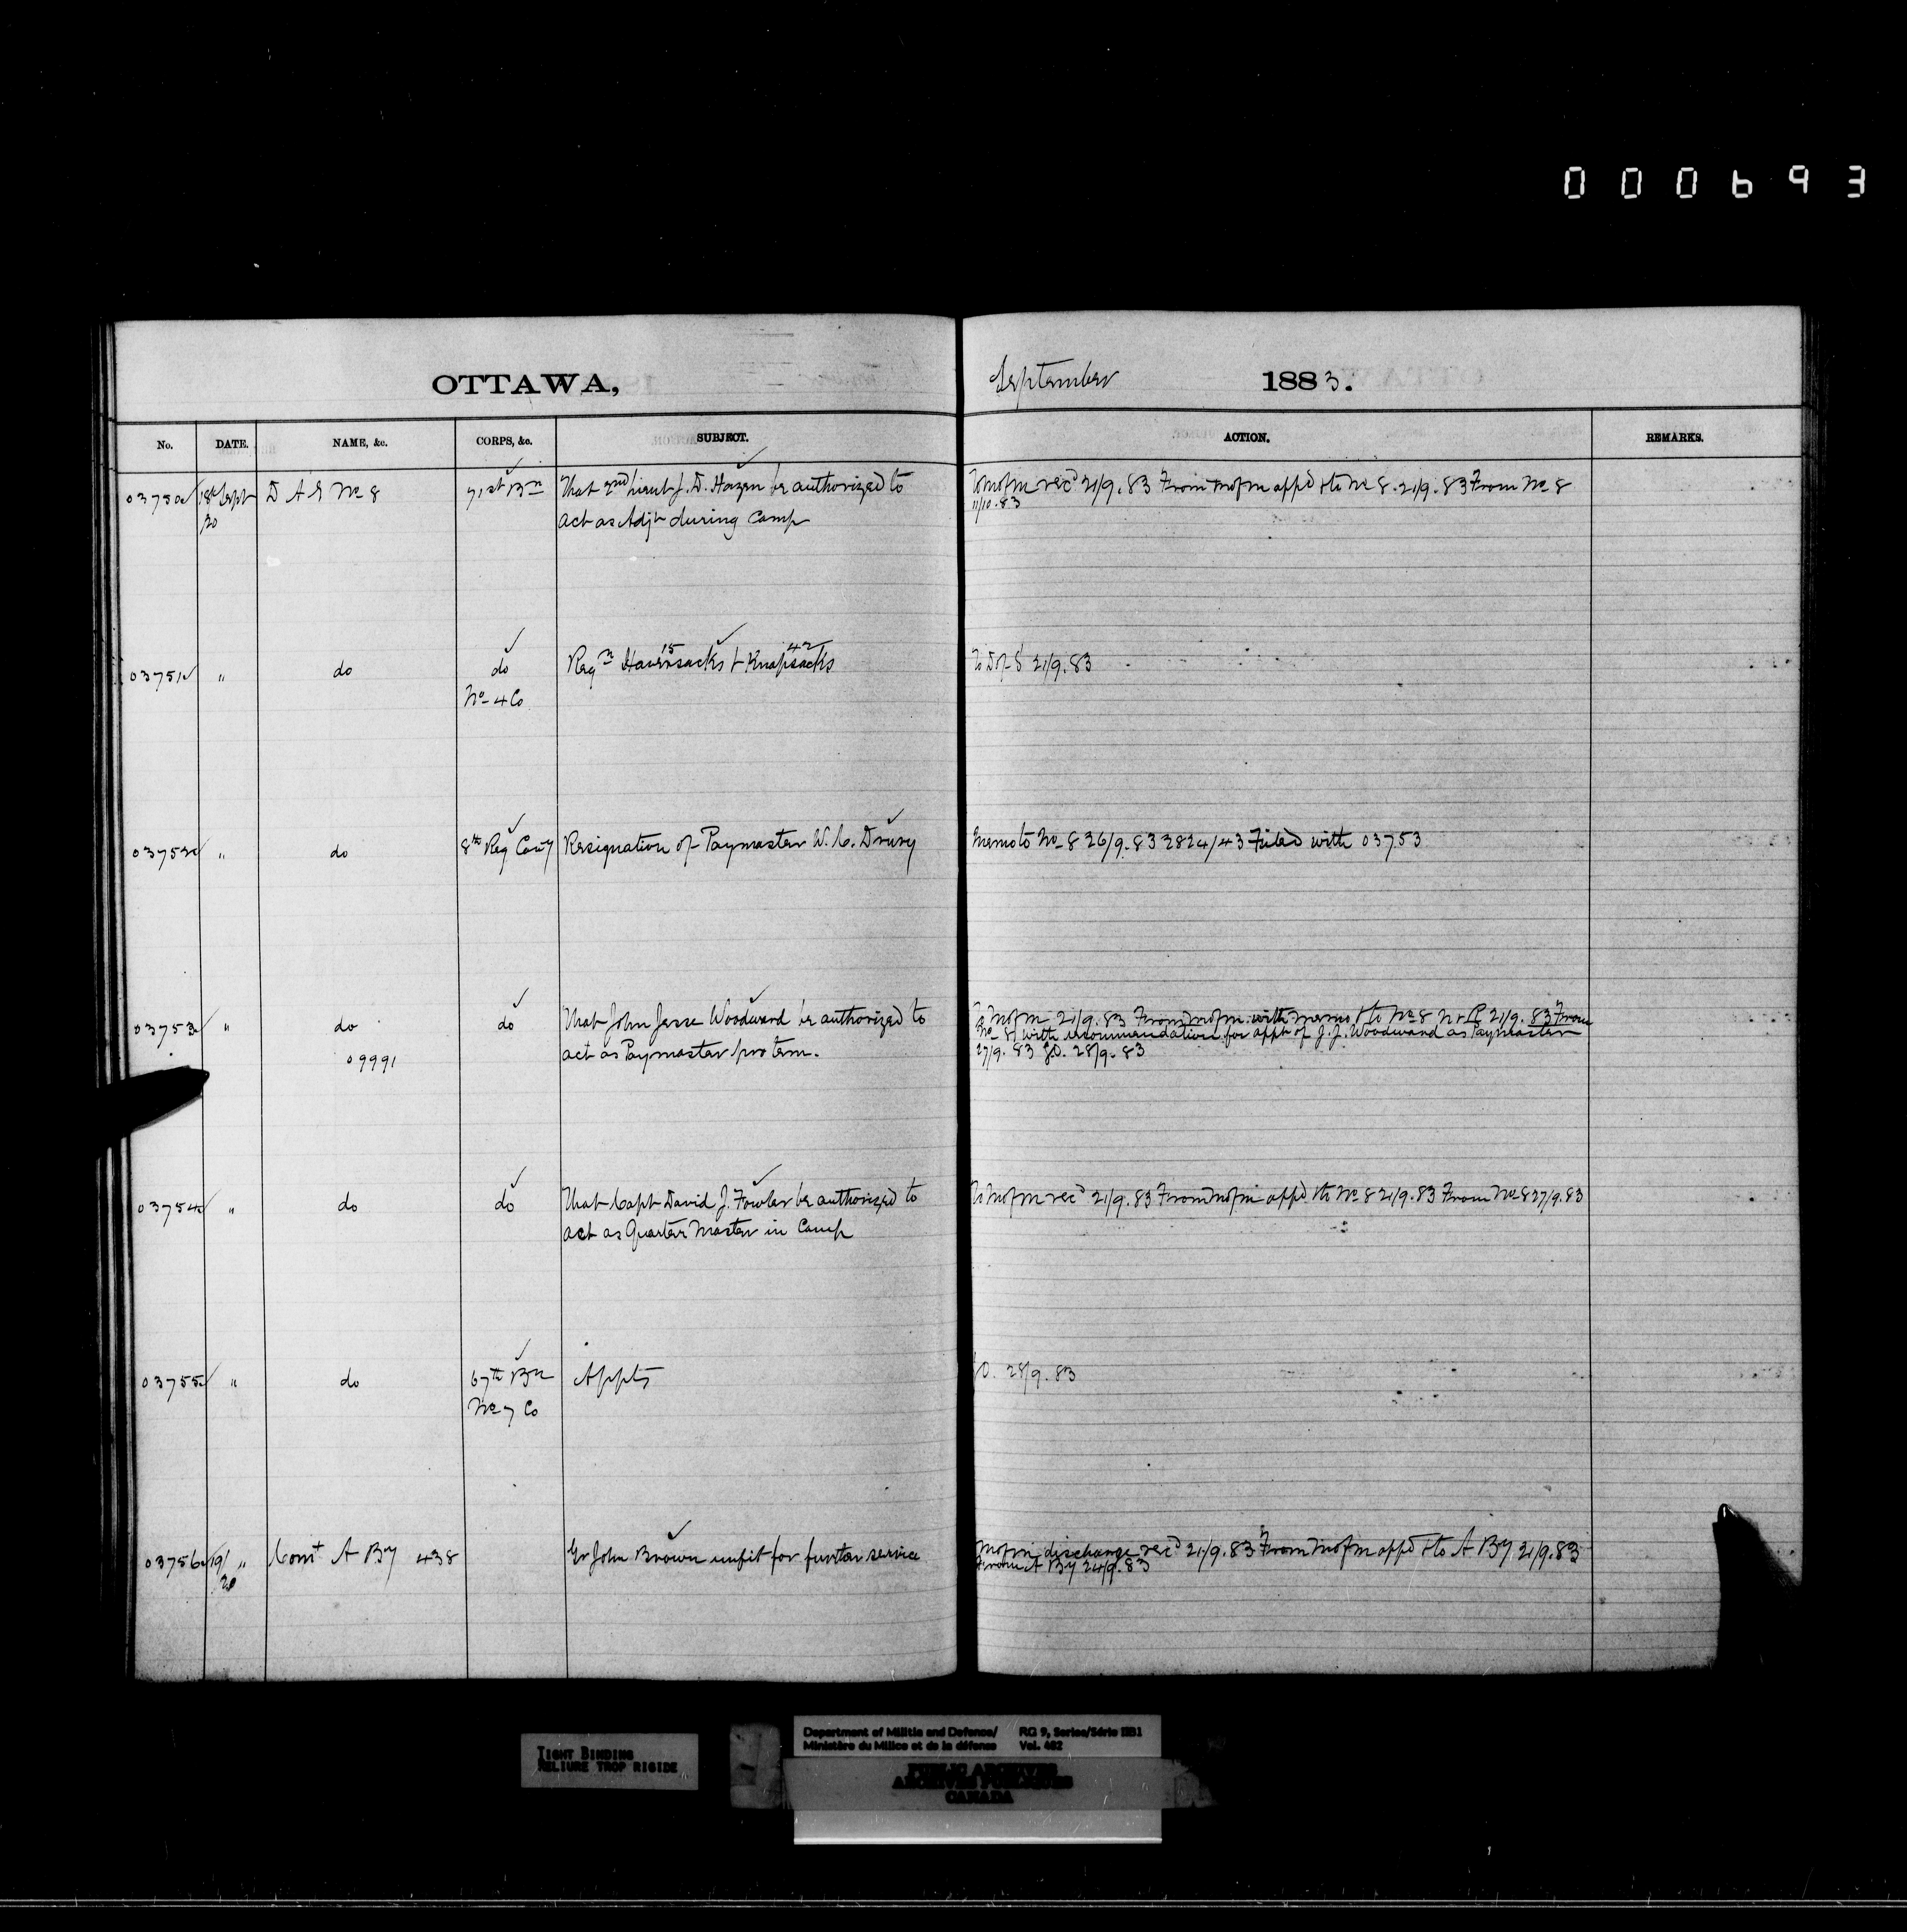 000693
OTTAWA, September 1883.
No. DATE. NAME, &c. CORPS, &c. SUBJECT. ACTION. REMARKS.
03750 18th Sept D A G No 8 71st Bn That 2nd Lieut J. D. Hazen be authorized to To M of M rec'd 21/9.83 From M of M app'd & to No 8. 21/9.83 From No 8
20 act as Adjt during Camp 11/10.83
15 42
03751 " do do Reqn Haversacks & Knapsacks To D of S 21/9.83
No 4 Co
03752 " do 8th Reg Cavy Resignation of Paymaster W. C. Drury Memo to No 8 26/9.83 2824/43 Filed with 03753
03753 " do do That John Jesse Woodward be authorized to To M of M 21/9.83 From M of M with memo & to No 8 N & R 21/9.83 From
09991 act as Paymaster pro tem. No 8 with recommendation for appt of J. J. Woodward as Paymaster
27/9.83 GO. 28/9.83
03754 " do do That Capt David J. Fowler be authorized to To M of M rec'd 21/9.83 From M of M app'd & to No 8 21/9.83 From No 8 27/9.83
act as Quarter Master in Camp
03755 " do 67th Bn Appts GO. 28/9.83
No 7 Co
03756 19/ " Comt A By 438 Gr John Brown unfit for further service M of M discharge rec'd 21/9.83 From M of M app'd & to A By 21/9.83
20 From A By 24/9.83
TIGHT BINDING
RELIURE TROP RIGIDE
Department of Militia and Defence/ RG 9, Series/Série IIB1
Ministère du Milice et de la défense Vol. 462
PUBLIC ARCHIVES
ARCHIVES PUBLIQUES
CANADA